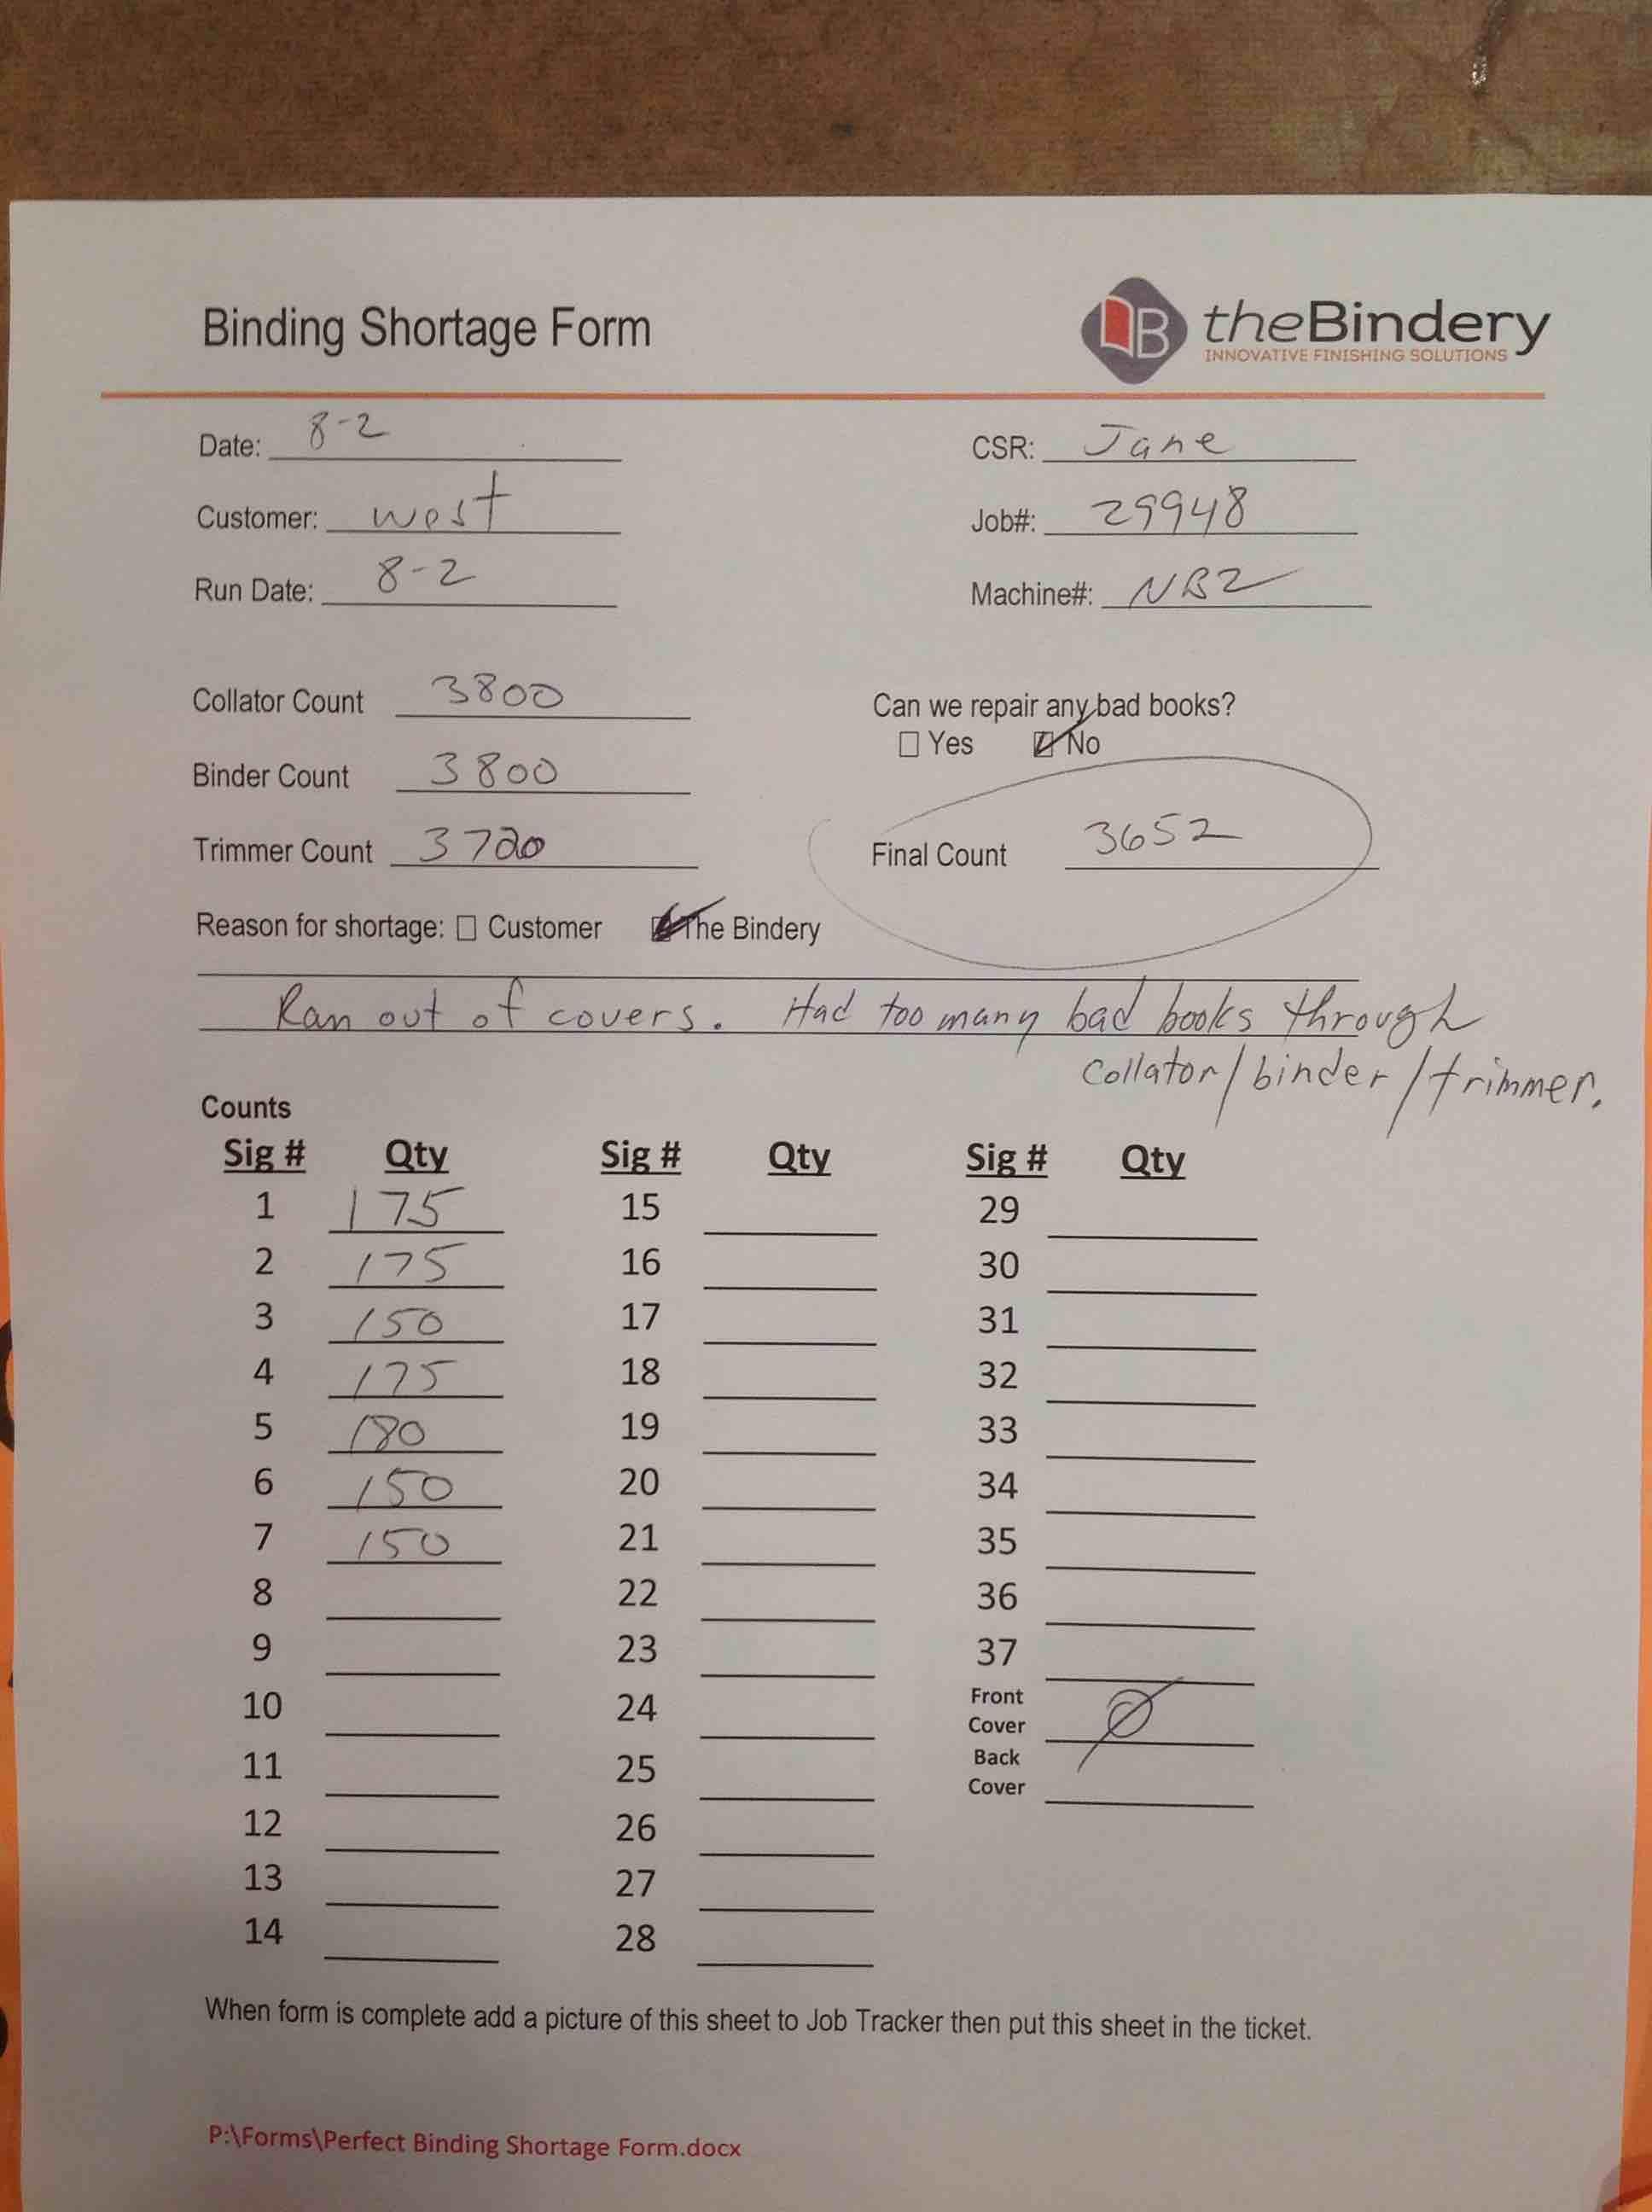 Binding Shortage Form
theBindery
INNOVATIVE FINISHING SOLUTIONS
Date: 8-2
CSR: Jane
Customer: west
Job#: 29948
Run Date: 8-2
Machine#: NB2
Collator Count 3800
Can we repair any bad books?
Yes No
Binder Count 3800
Trimmer Count 3720
Final Count 3652
Reason for shortage: Customer The Bindery
Ran out of covers. Had too many bad books through
collator/binder/trimmer.
Counts
Sig # Qty Sig # Qty Sig # Qty
1 175 15 29
2 175 16 30
3 150 17 31
4 175 18 32
5 180 19 33
6 150 20 34
7 150 21 35
8 22 36
9 23 37
10 24 Front Cover Ø
11 25 Back Cover
12 26
13 27
14 28
When form is complete add a picture of this sheet to Job Tracker then put this sheet in the ticket.
P:\Forms\Perfect Binding Shortage Form.docx